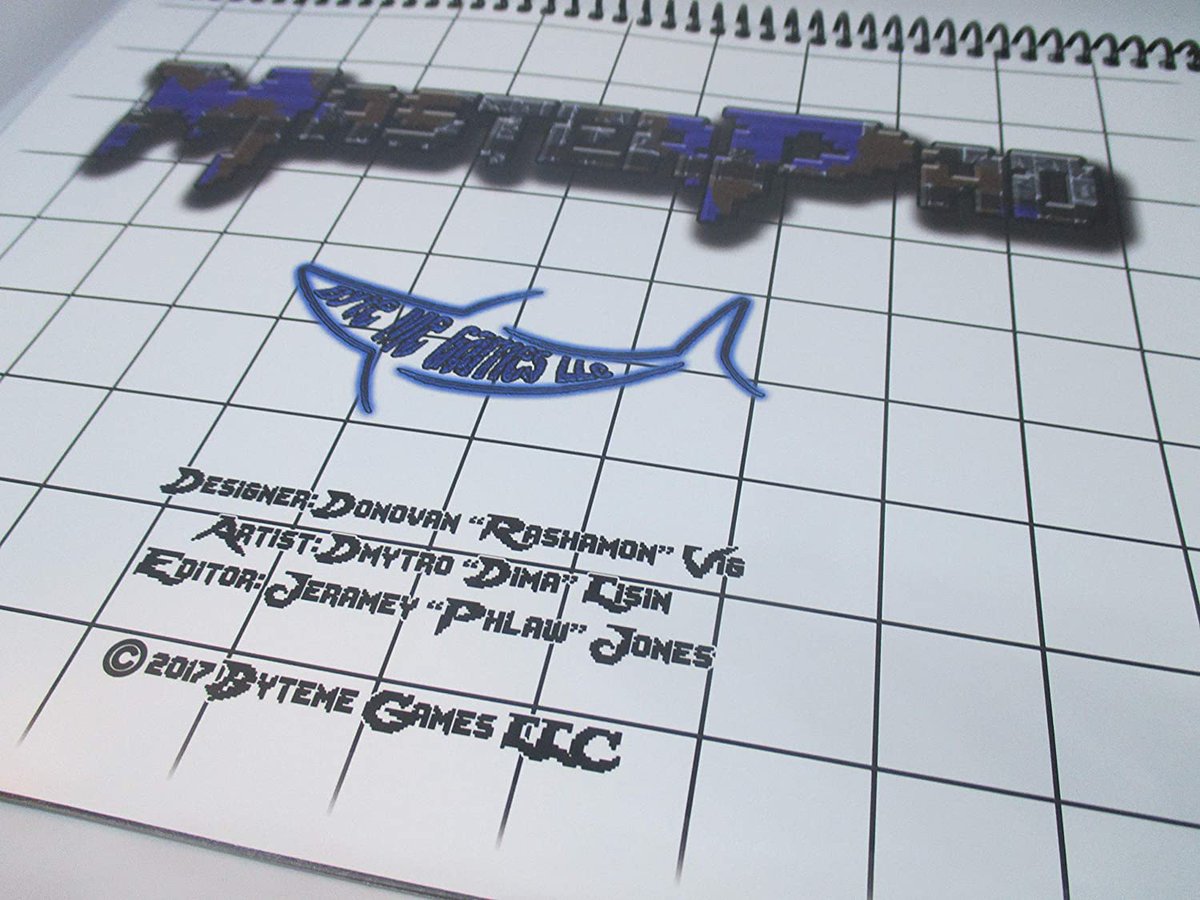 Byte Me Games LLC
Designer: Donovan “Rashamon” Vig
Artist: Dmytro “Dima” Lisin
Editor: Jeramey “Phlaw” Jones
© 2017 Byteme Games LLC